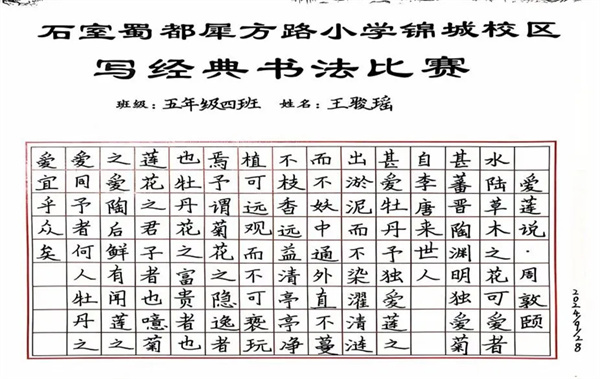 石室蜀都犀方路小学锦城校区
写经典书法比赛
班级:五年级四班 姓名:王骏瑶
爱莲说·周敦颐
水陆草木之花可爱者
甚蕃晋陶渊明独爱菊
自李唐来世人
甚爱牡丹予独爱莲之
出淤泥而不染濯清涟
而不妖中通外直不蔓
不枝香远益清亭亭净
植可远观而不可亵玩
焉予谓菊花之隐逸者
也牡丹花之富贵者也
莲花之君子者也噫菊
之爱陶后鲜有闻莲之
爱同予者何人牡丹之
爱宜乎众矣
2024/9/28